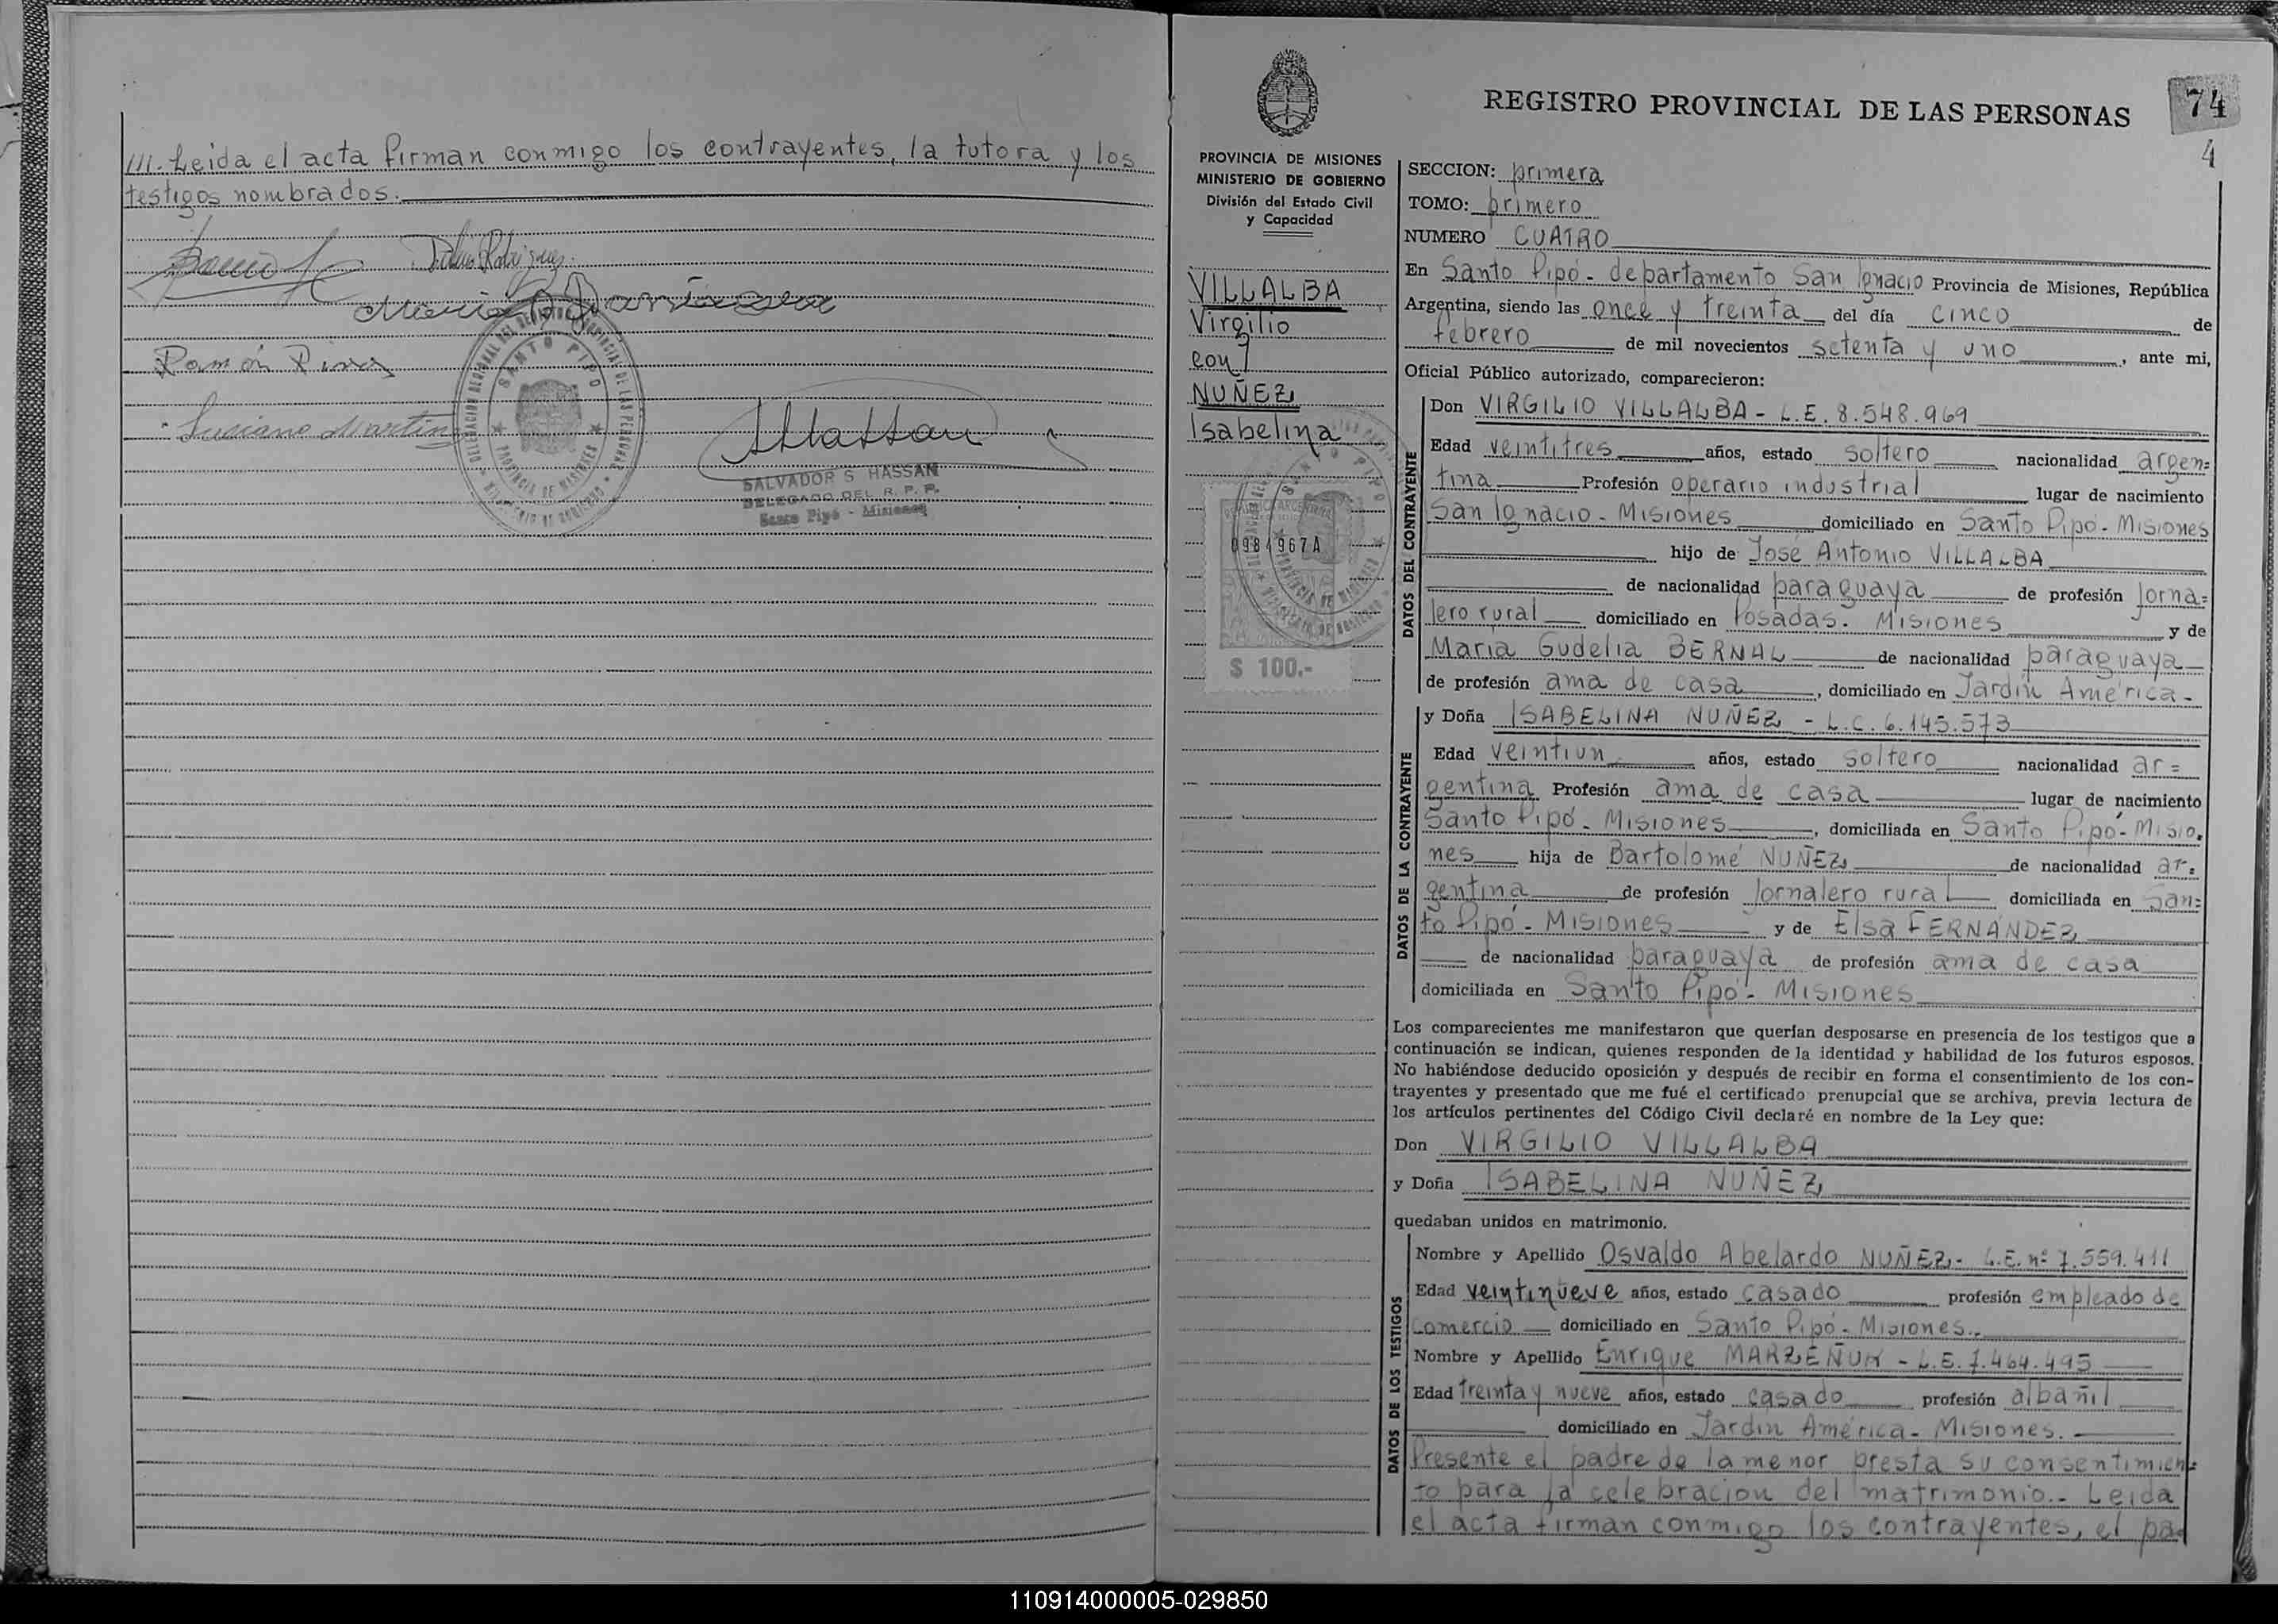 ///.- Leida el acta firman conmigo los contrayentes, la tutora y los
testigos nombrados.
Ramón Rivas
Luciano Martin
SALVADOR S. HASSAN
DELEGADO DEL R. P. P.
Santo Pipó - Misiones
REGISTRO PROVINCIAL DE LAS PERSONAS
74
4
PROVINCIA DE MISIONES
MINISTERIO DE GOBIERNO
División del Estado Civil
y Capacidad
VILLALBA
Virgilio
con
NUÑEZ
Isabelina
0984967A
$ 100.-
SECCION: primera
TOMO: primero
NUMERO CUATRO
En Santo Pipó - departamento San Ignacio Provincia de Misiones, República
Argentina, siendo las once y treinta del día cinco de
febrero de mil novecientos setenta y uno, ante mi,
Oficial Público autorizado, comparecieron:
DATOS DEL CONTRAYENTE
Don VIRGILIO VILLALBA - L.E. 8.548.969
Edad veintitres años, estado soltero nacionalidad argen=
tina Profesión operario industrial lugar de nacimiento
San Ignacio - Misiones domiciliado en Santo Pipó - Misiones
hijo de José Antonio VILLALBA
de nacionalidad paraguaya de profesión Jorna=
lero rural domiciliado en Posadas. Misiones y de
María Gudelia BERNAL de nacionalidad paraguaya
de profesión ama de casa, domiciliado en Jardín América -
DATOS DE LA CONTRAYENTE
y Doña ISABELINA NUÑEZ - L.C. 6.145.573
Edad veintiun años, estado soltero nacionalidad ar=
gentina Profesión ama de casa lugar de nacimiento
Santo Pipó - Misiones, domiciliada en Santo Pipó - Misio=
nes hija de Bartolomé NUÑEZ de nacionalidad ar=
gentina de profesión Jornalero rural domiciliada en San=
to Pipó - Misiones y de Elsa FERNÁNDEZ
de nacionalidad paraguaya de profesión ama de casa
domiciliada en Santo Pipó - Misiones
Los comparecientes me manifestaron que querían desposarse en presencia de los testigos que a
continuación se indican, quienes responden de la identidad y habilidad de los futuros esposos.
No habiéndose deducido oposición y después de recibir en forma el consentimiento de los con-
trayentes y presentado que me fué el certificado prenupcial que se archiva, previa lectura de
los artículos pertinentes del Código Civil declaré en nombre de la Ley que:
Don VIRGILIO VILLALBA
y Doña ISABELINA NUÑEZ
quedaban unidos en matrimonio.
DATOS DE LOS TESTIGOS
Nombre y Apellido Osvaldo Abelardo NUÑEZ - L.E. nº 7.559.411
Edad veintinueve años, estado casado profesión empleado de
comercio domiciliado en Santo Pipó - Misiones.
Nombre y Apellido Enrique MARZEÑUK - L.E. 7.464.495
Edad treinta y nueve años, estado casado profesión albañil
domiciliado en Jardín América - Misiones.
Presente el padre de la menor presta su consentimien=
to para la celebracion del matrimonio.- Leida
el acta firman conmigo los contrayentes, el pa=
110914000005-029850